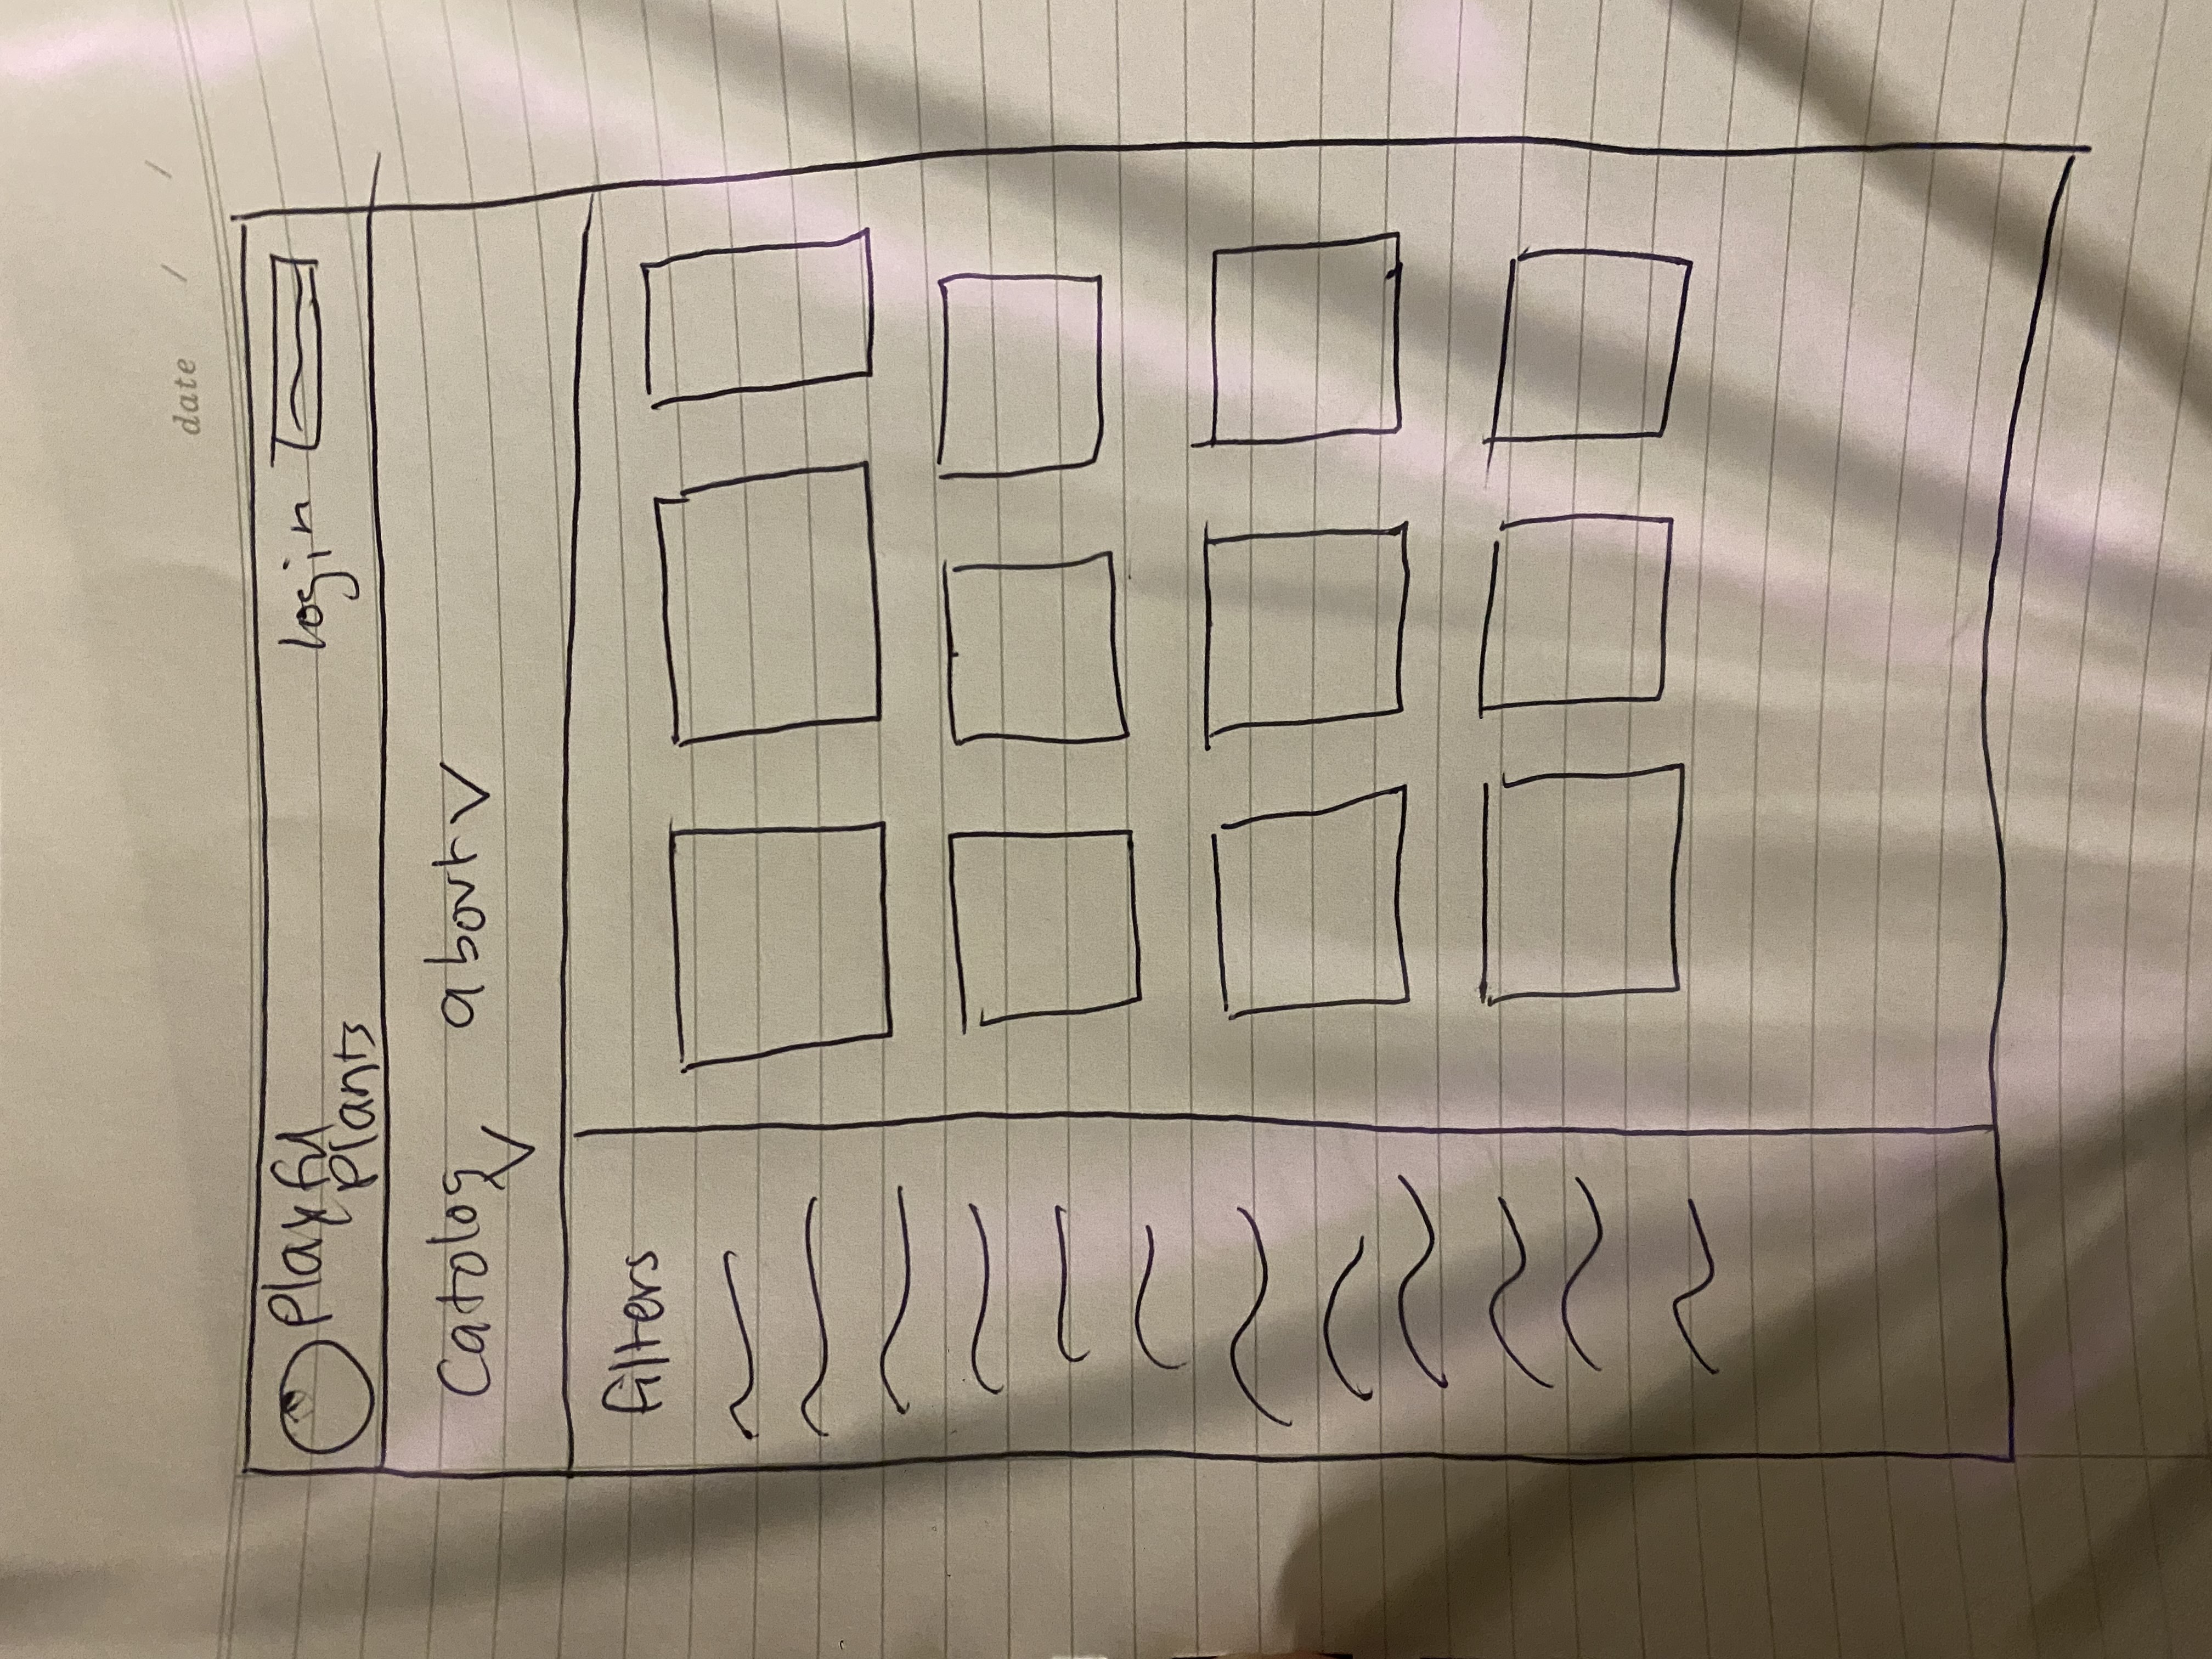 date / /
Playful
Plants
login
Catolog
about
filters